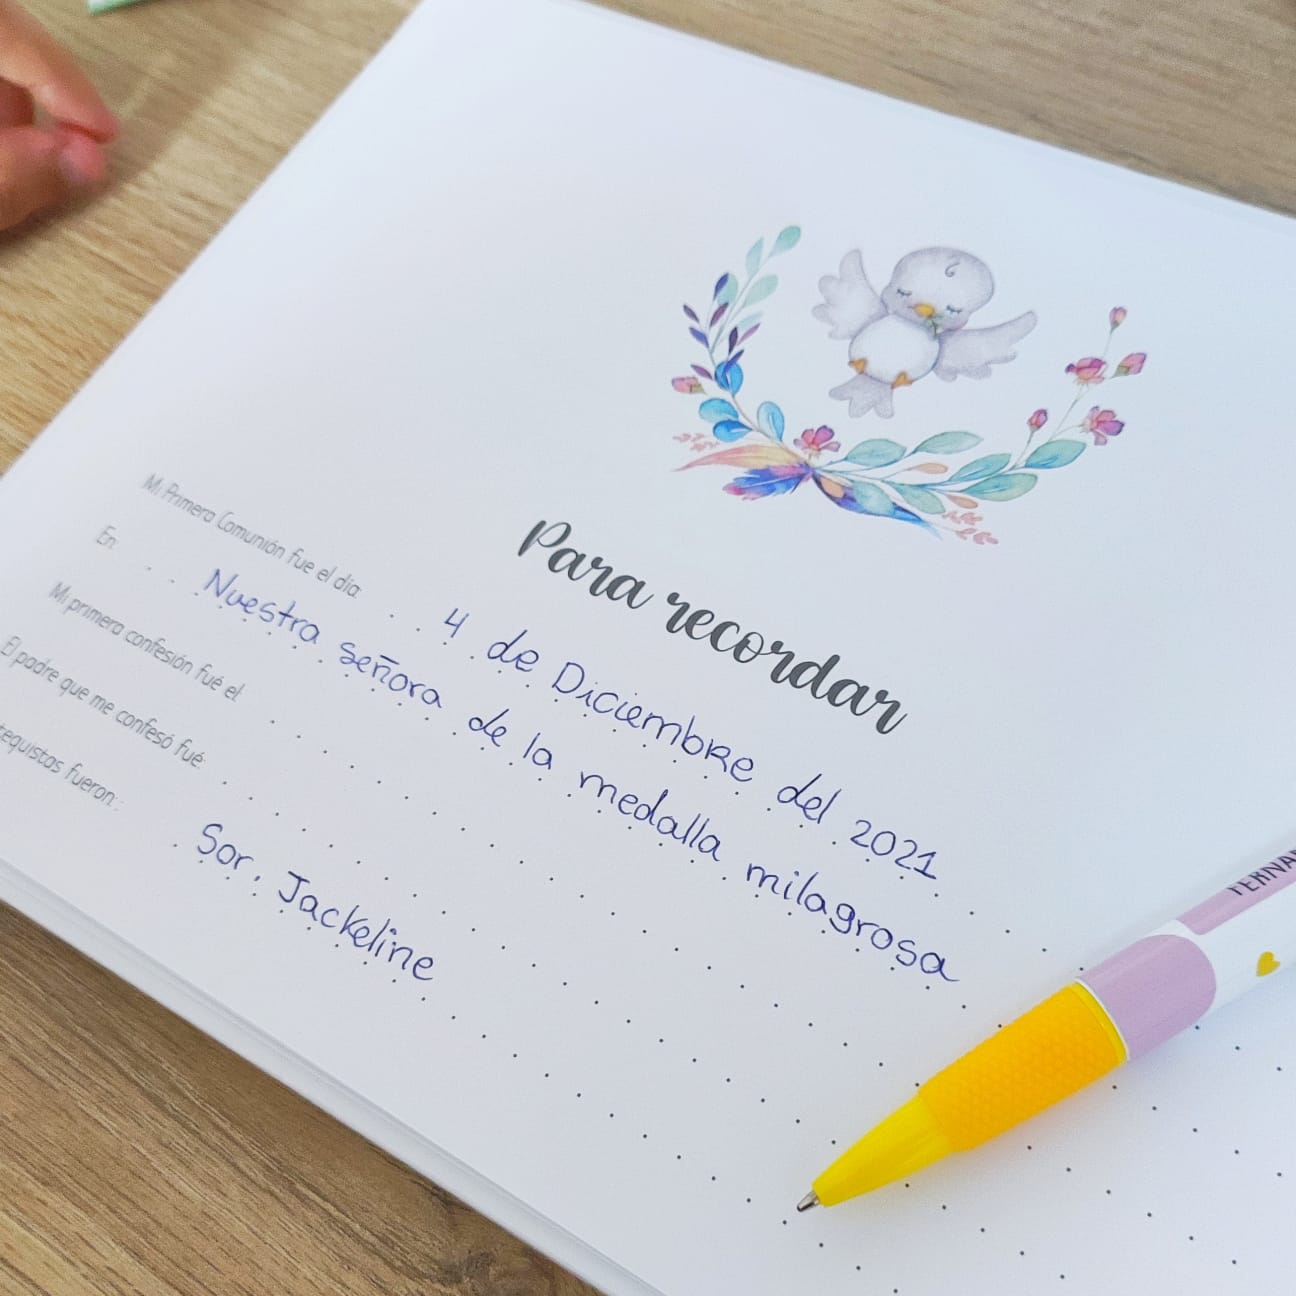 Para recordar
Mi Primera Comunión fue el día: 4 de Diciembre del 2021
En: Nuestra señora de la medalla milagrosa
Mi primera confesión fué el:
El padre que me confesó fué:
fueron: Sor. Jackeline